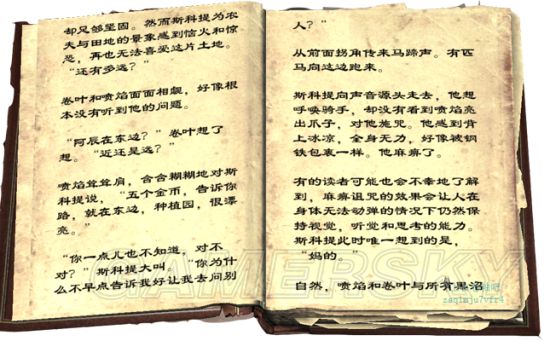 却足够坚固。然而斯科提为农
夫与田地的景象感到恼火和惊
恐，再也无法喜爱这片土地。
“还有多远？”
卷叶和喷焰面面相觑，好像根
本没有听到他的问题。
“阿辰在东边？”卷叶想了
想。“近还是远？”
喷焰耸耸肩，含含糊糊地对斯
科提说，“五个金币，告诉你
路，就在东边，种植园，很漂
亮。”
“你一点儿也不知道，对不
对？”斯科提大叫，“你为什
么不早点告诉我好让我去问别
人？”
从前面拐角传来马蹄声。有匹
马向这边跑来。
斯科提向声音源头走去，他想
呼唤骑手，却没有看到喷焰亮
出爪子，对他施咒。他感到背
上冰凉，全身无力，好像被钢
铁包裹一样。他麻痹了。
有的读者可能也会不幸地了解
到，麻痹诅咒的效果会让人在
身体无法动弹的情况下仍然保
持视觉，听觉和思考的能力。
斯科提此时唯一想到的是，
“妈的。”
自然，喷焰和卷叶与所有黑沼
GAMERSKY
zaqimju7vfr4